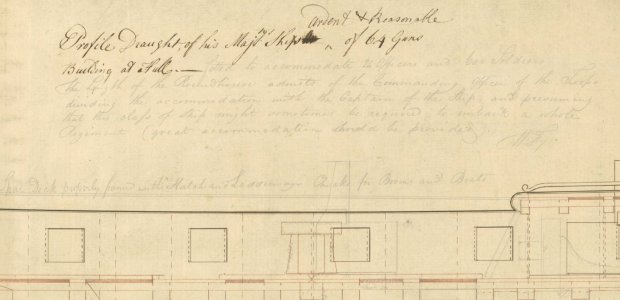 Ardent & Reasonable
Profile Draught of his Maj:tys Ships of 64 Guns
Building at Hull. to accommodate Officers and Soldiers
the length of the admits of the Commanding Officer of the Troops
dividing the accommodation with the Captain of the Ship, and presuming
that this class of Ship might sometimes be required to embark a whole
Regiment (great accommodation should be provided)
Spar Deck properly framed with Hatch and Ladderways Chocks for Booms and Boats